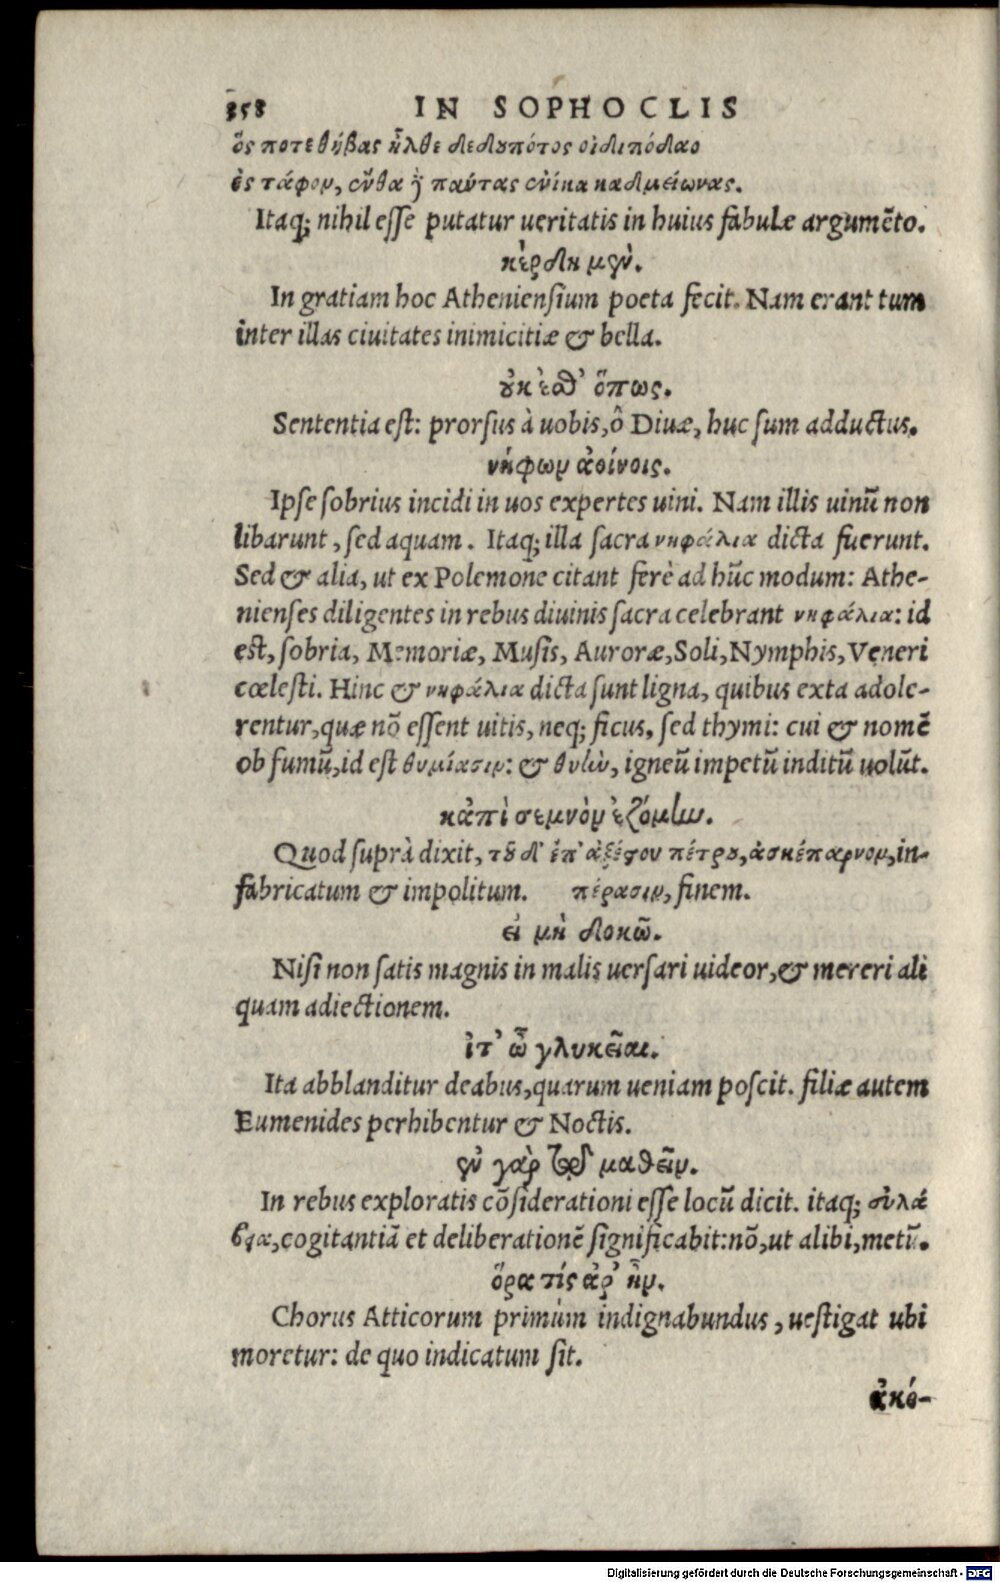 358 IN SOPHOCLIS
ὅς ποτε θήβας ἦλθε δεδουπότος οἰδιπόδαο
ἐς τάφον, ἔνθα δὲ πάντας ἐνίκα καδμείωνας.
Itaq; nihil esse putatur ueritatis in huius fabulæ argumẽto.
κέρδη μὲν.
In gratiam hoc Atheniensium poeta fecit. Nam erant tum
inter illas ciuitates inimicitiæ & bella.
οὐκ ἔσθ' ὅπως.
Sententia est: prorsus à uobis, ô Diuæ, huc sum adductus.
νήφων ἀοίνοις.
Ipse sobrius incidi in uos expertes uini. Nam illis uinũ non
libarunt, sed aquam. Itaq; illa sacra νηφάλια dicta fuerunt.
Sed & alia, ut ex Polemone citant ferè ad hũc modum: Athe-
nienses diligentes in rebus diuinis sacra celebrant νηφάλια: id
est, sobria, Memoriæ, Musis, Auroræ, Soli, Nymphis, Veneri
cœlesti. Hinc & νηφάλια dicta sunt ligna, quibus exta adole-
rentur, quæ nõ essent uitis, neq; ficus, sed thymi: cui & nomẽ
ob fumũ, id est θυμίασιν: & θυμὸν, igneũ impetũ inditũ uolũt.
κἀπὶ σεμνὸν ἑζόμην.
Quod suprà dixit, τοῦ δ' ἐπ' ἀξέστου πέτρου, ἀσκέπαρνον, in-
fabricatum & impolitum. πέρασιν, finem.
εἰ μὴ δοκῶ.
Nisi non satis magnis in malis uersari uideor, & mereri ali
quam adiectionem.
ἴτ' ὦ γλυκεῖαι.
Ita abblanditur deabus, quarum ueniam poscit. filiæ autem
Eumenides perhibentur & Noctis.
ἐν γὰρ τῷ μαθεῖν.
In rebus exploratis cõsiderationi esse locũ dicit. itaq; εὐλά
βεια, cogitantiã et deliberationẽ significabit: nõ, ut alibi, metũ.
ὅρα τίς ἄρ' ἦν.
Chorus Atticorum primùm indignabundus, uestigat ubi
moretur: de quo indicatum sit.
ἀκό-
Digitalisierung gefördert durch die Deutsche Forschungsgemeinschaft - DFG